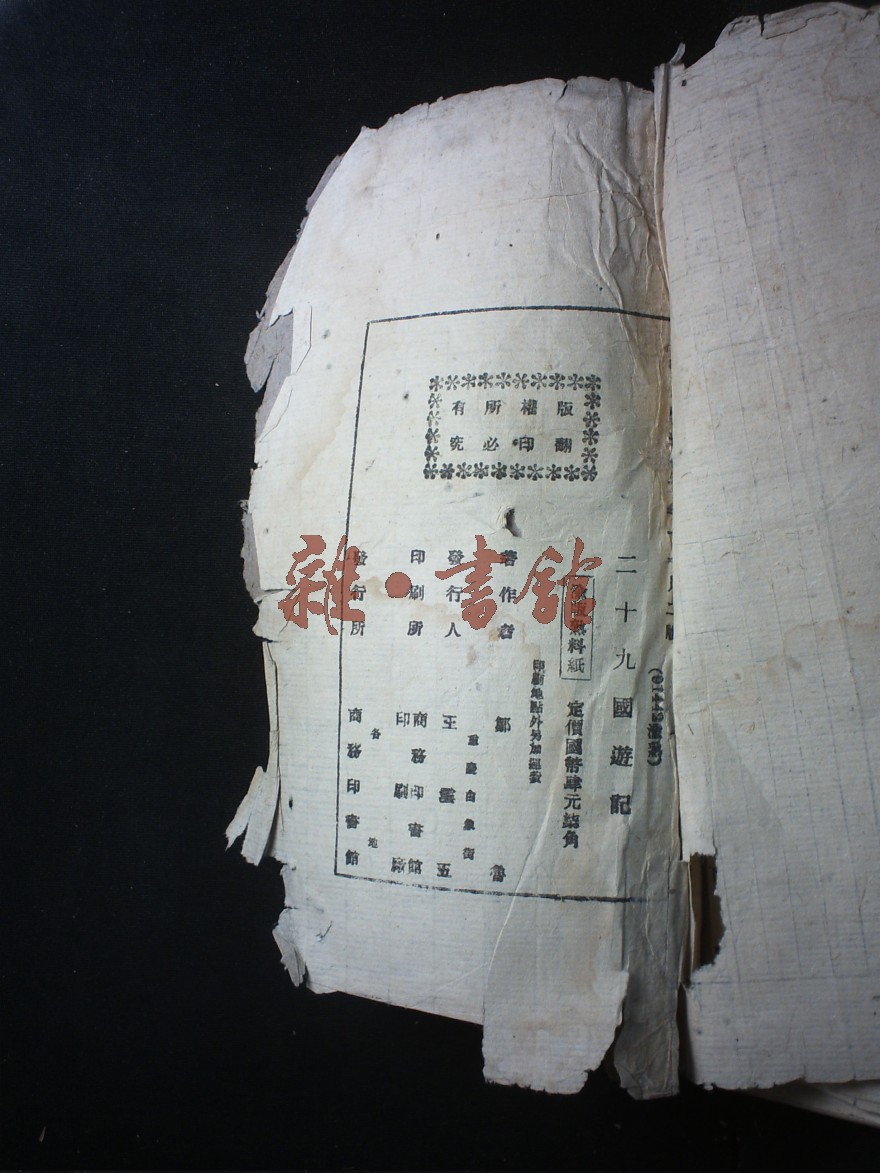 版權所有
翻印必究
二十九國遊記
(61442渝熟)
渝版熟料紙
定價國幣肆元柒角
印刷地點外另加運費
著作者 鄒魯
發行人 王雲五
重慶白象街
印刷所 商務印書館
印刷廠
發行所 商務印書館
各地
雜·書館